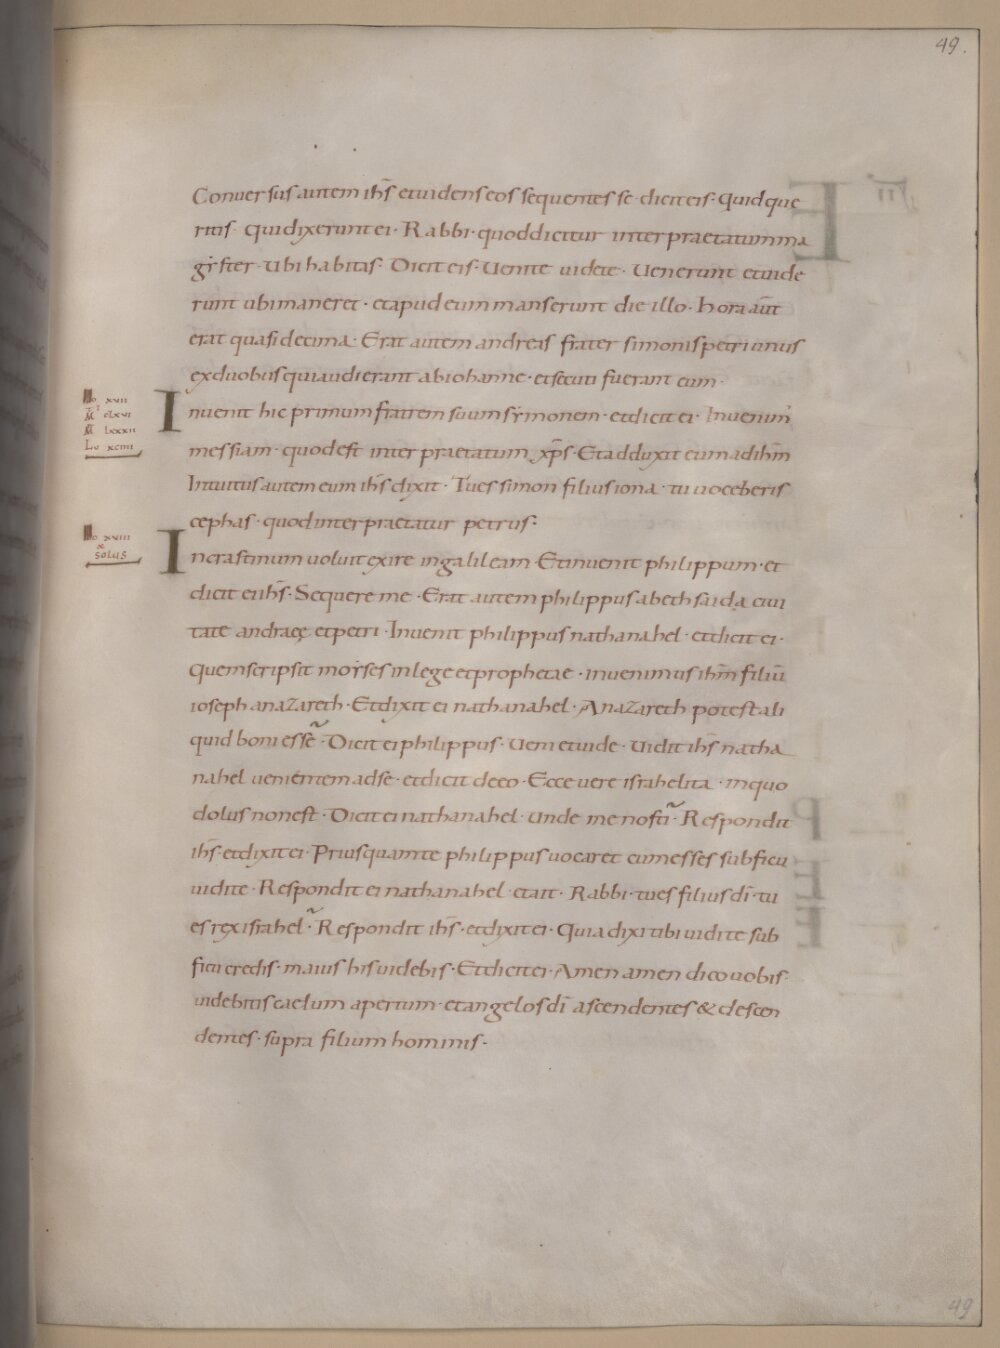 49.
Conuersus autem ihs̄ et uidens eos sequentes se · dicit eis · Quid que
ritis · Qui dixerunt ei · Rabbi · quod dicitur interpraetatum ma
gister · Ubi habitas · Dicit eis · Uenite uidete · Uenerunt et uide
runt ubi maneret · et apud eum manserunt die illo · Hora aūt
erat quasi decima · Erat autem andreas frater simonis petri unus
ex duobus qui audierant ab iohanne · et secuti fuerant eum ·
Io xvii
Mt clxvi
Mr lxxxii
Lu xciiii
Inuenit hic primum fratrem suum sẏmonem · et dicit ei · Inuenim̄
messiam · quod est interpraetatum xp̄s · Et adduxit eum ad ihm̄
Intuitus autem eum ihs̄ dixit · Tu es simon filius iona · tu uoceberis
cephas · quod interpraetatur petrus ·
Io xviii
solus
In crastinum uoluit exire in galileam · Et inuenit philippum · et
dicit ei ihs̄ · Sequere me · Erat autem philippus a bethsaida ciui
tate andraeę et petri · Inuenit philippus nathanahel · et dicit ei ·
Quem scripsit moẏses in lege et prophetae · inuenimus ihm̄ filiū
ioseph a nazareth · Et dixit ei nathanahel · A nazareth potest ali
quid boni esse · Dicit ei philippus · Ueni et uide · Uidit ihs̄ natha
nahel uenientem ad se · et dicit de eo · Ecce uere israhelita · in quo
dolus non est · Dicit ei nathanahel · Unde me nosti · Respondit
ihs̄ · et dixit ei · Priusquam te philippus uocaret cum esses sub ficu
uidi te · Respondit ei nathanahel et ait · Rabbi · tu es filius dī · tu
es rex israhel · Respondit ihs̄ · et dixit ei · Quia dixi tibi uidi te sub
ficu credis · maius his uidebis · Et dicit ei · Amen amen dico uobis ·
uidebitis caelum apertum · et angelos dī ascendentes & descen
dentes · supra filium hominis ·
49